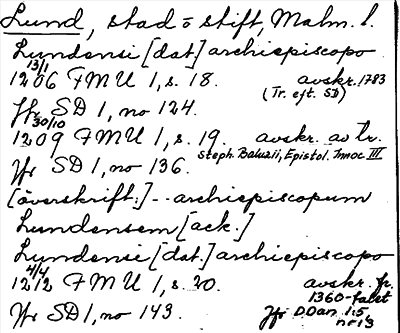 Lund, stad o stift, Malm. l.
Lundensi [dat.] archiepiscopo
13/1
1206 FMU 1, s. 18. avskr. 1783
(Tr. eft. SD)
Jfr SD 1, no 124.
30/10
1209 FMU 1, s. 19. avskr. av tr.
Steph. Baluzii, Epistol. Innoc III
Jfr SD 1, no 136.
[överskrift:] - - archiepiscopum
Lundensem [ack.]
Lundensi [dat.] archiepiscopo
4/4
1212 FMU 1, s. 20. avskr. fr.
1360-talet
Jfr SD 1, no 143. Jfr DDan 1:5,
nr 13